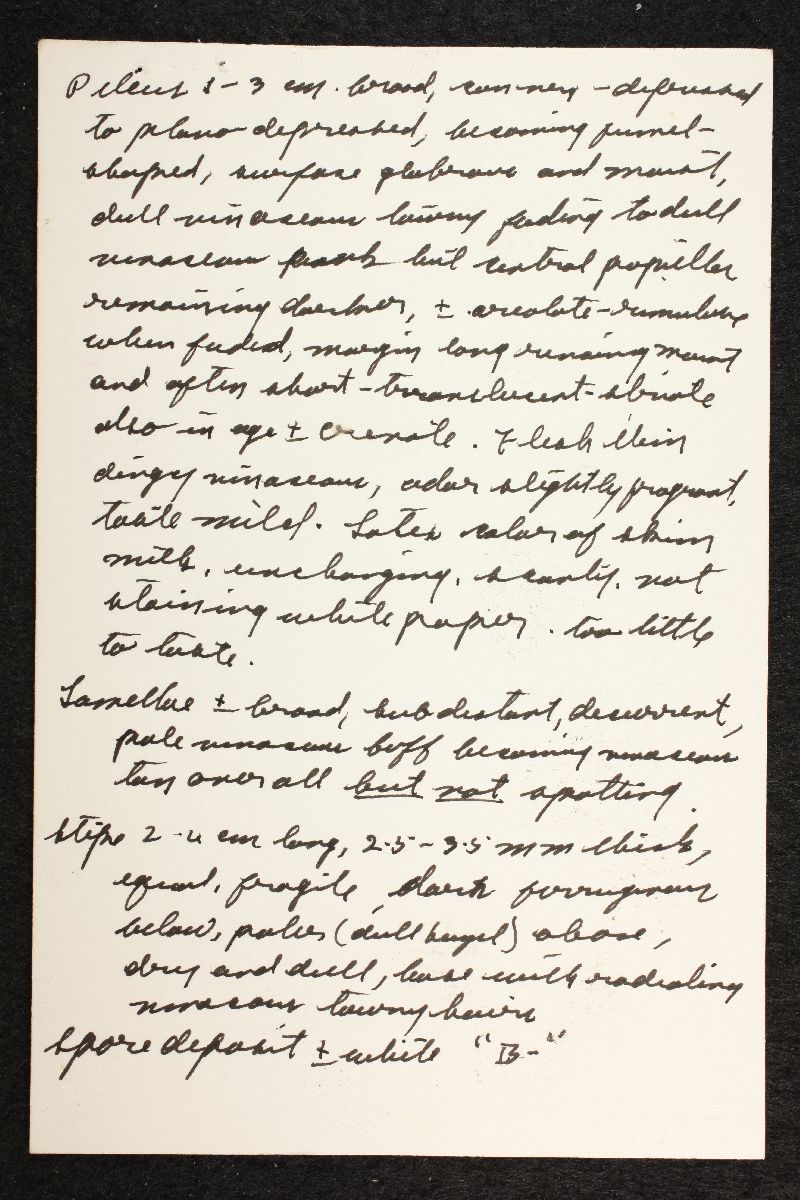 Pileus 1-3 cm. broad, convex-depressed
to plano-depressed, becoming funnel-
shaped, surface glabrous and moist,
dull vinaceous tawny fading to dull
vinaceous but central papilla
remaining darker, ± areolate-rimulose
when faded, margin long remaining moist
and often short-translucent-striate
also in age ± crenate. Flesh thin
dingy vinaceous, odor slightly fragrant,
taste mild. Latex color of skim
milk, unchanging, scanty, not
staining white paper. too little
to taste.
Lamellae ± broad, subdistant, decurrent,
pale vinaceous buff becoming vinaceous
tan over all but not spotting.
Stipe 2-4 cm long, 2.5-3.5 mm thick,
equal, fragile, dark ferruginous
below, paler (dull hazel) above,
dry and dull, base with radiating
vinaceous tawny hairs
Spore deposit ± white "B-"